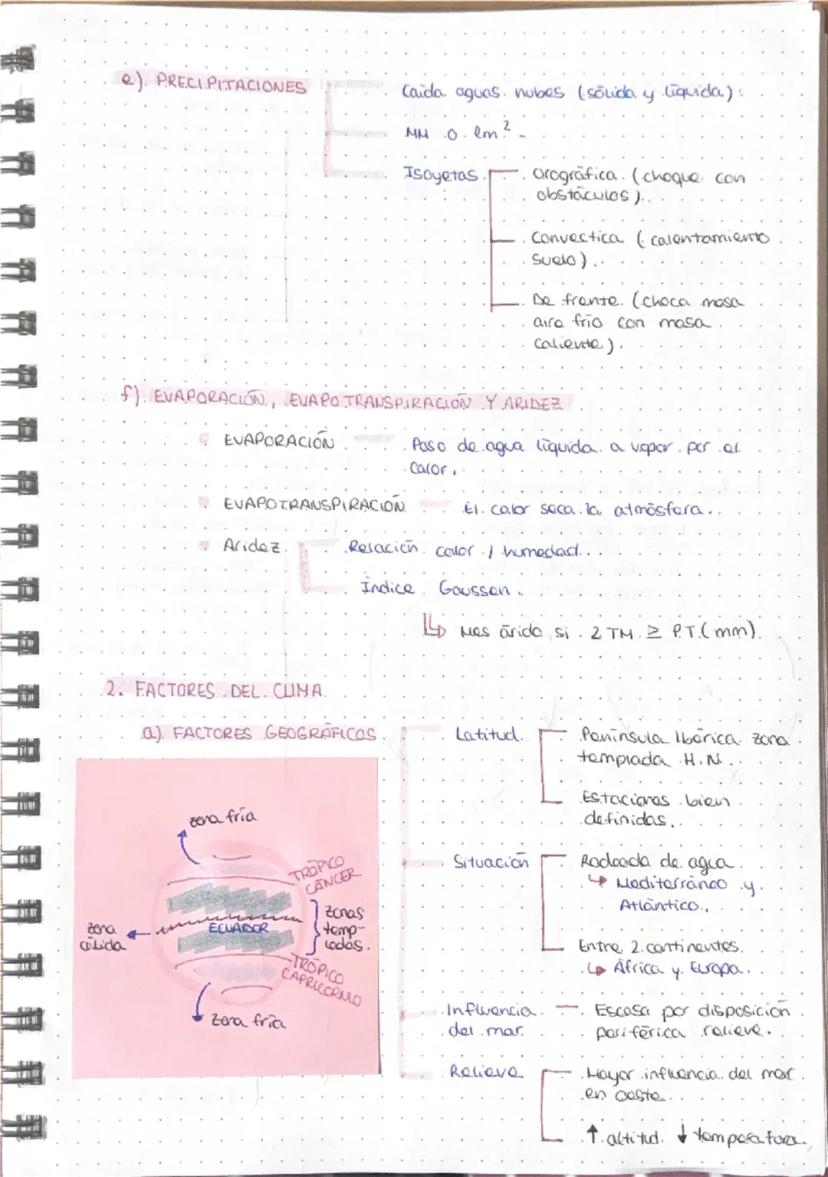 e) PRECIPITACIONES
Caída aguas nubes (sólida y líquida):
MM o lm².
Isoyetas
Orográfica (choque con
obstáculos).
Convectica (calentamiento
suelo).
De frente (choca masa
aire frío con masa
caliente).
f) EVAPORACIÓN, EVAPOTRANSPIRACIÓN Y ARIDEZ
EVAPORACIÓN
Paso de agua líquida a vapor por el
calor.
EVAPOTRANSPIRACIÓN
El calor seca la atmósfera.
Aridez
Relación calor / humedad.
Índice Gaussen.
↳ Mes árido si 2 TM ≥ P.T.(mm)
2. FACTORES DEL CLIMA
a) FACTORES GEOGRÁFICOS
Latitud
Península Ibérica zona
templada H.N.
Estaciones bien
definidas.
Situación
Rodeada de agua
↳ Mediterráneo y
Atlántico.
Entre 2 continentes.
↳ África y Europa.
Influencia
del mar
Escasa por disposición
periférica relieve.
Relieve
Mayor influencia del mar
en oeste
↑ altitud ↓ temperatura.
zona fría
TRÓPICO
CÁNCER
zona
cálida
ECUADOR
zonas
temp-
ladas.
TRÓPICO
CAPRICORNIO
zona fría